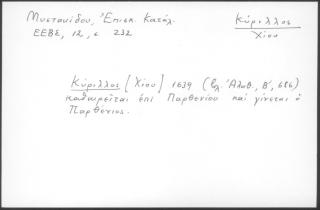 Μυστακίδου, Ἐπισκ. Κατάλ.
ΕΕΒΣ, 12, σ 232
Κύριλλος
Χίου
Κύριλλος [Χίου] 1639 (βλ. Ἀλαθ., Β', 686)
καθαιρεῖται ἐπὶ Παρθενίου καὶ γίνεται ὁ
Παρθένιος.